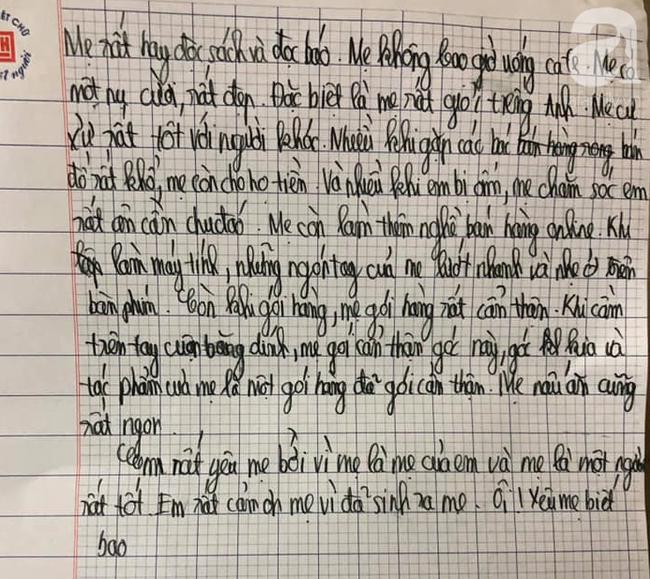 Mẹ rất hay đọc sách và đọc báo. Mẹ không bao giờ uống cafe. Mẹ có
một nụ cười, rất đẹp. Đặc biệt là mẹ rất giỏi tiếng Anh. Mẹ cư
xử rất tốt với người khác. Nhiều khi gặp các bác bán hàng rong bán
đồ rất khổ, mẹ còn cho họ tiền. Và nhiều khi em bị ốm, mẹ chăm sóc em
rất ân cần chu đáo. Mẹ còn làm thêm nghề bán hàng online. Khi
làm máy tính, những ngón tay của mẹ lướt nhanh và nhẹ ở trên
bàn phím. Còn khi gói hàng, mẹ gói hàng rất cẩn thận. Khi cầm
trên tay cuộn băng dính, mẹ gói cẩn thận góc này, góc kia và
tác phẩm của mẹ là một gói hàng đã gói cẩn thận. Mẹ nấu ăn cũng
rất ngon.
Em rất yêu mẹ bởi vì mẹ là mẹ của em và mẹ là một người
rất tốt. Em rất cảm ơn mẹ vì đã sinh ra mẹ. Ôi! Yêu mẹ biết
bao